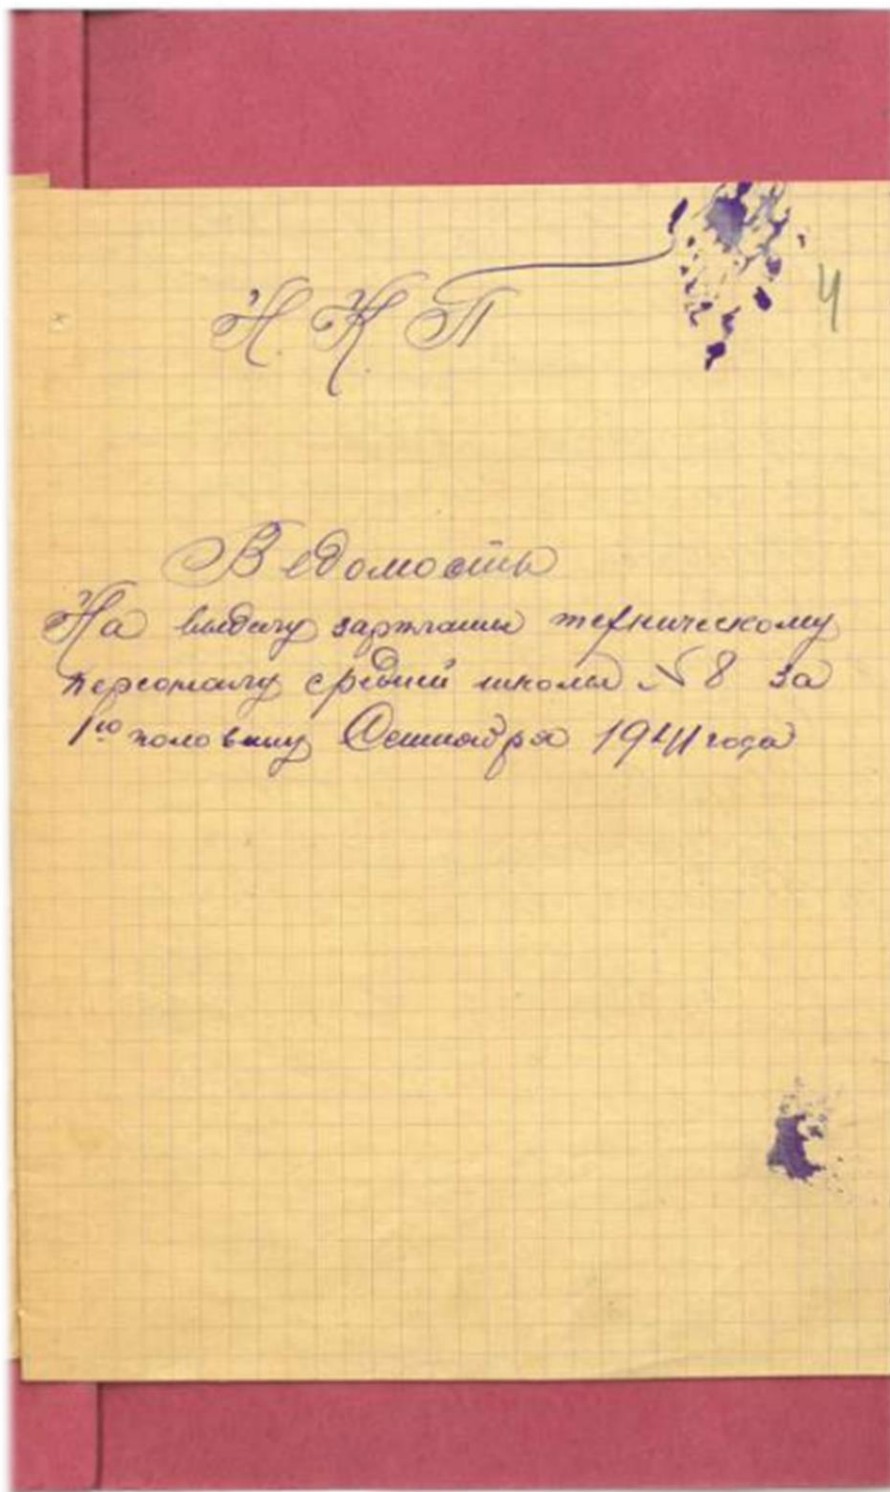 Н К П
4
Ведомость
На выдачу зарплаты техническому
персоналу средней школы № 8 за
1ую половину Сентября 1941 года